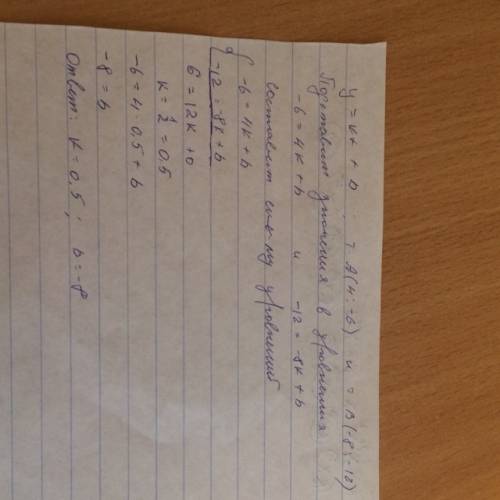 y = kx + b т A(4; -6) и т B(-8; -12)
Подставим значения в уравнения
-6 = 4k + b и -12 = -8k + b
составим с-му уравнений
{ -6 = 4k + b
-12 = -8k + b
6 = 12k + 0
k = 1/2 = 0.5
-6 = 4 · 0,5 + b
-8 = b
Ответ: k = 0,5; b = -8